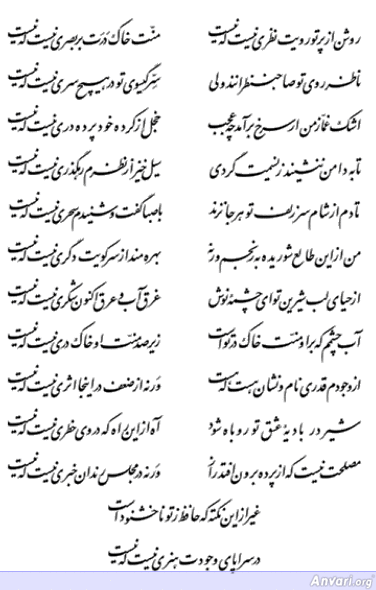 روشن از پرتو رویت نظری نیست که نیست منّت خاک درت بر بصری نیست که نیست
ناظر روی تو صاحب نظرانند ولی سرّ گیسوی تو در هیچ سری نیست که نیست
اشک غماز من ار سرخ برآمد چه عجب خجل از کرده خود پرده دری نیست که نیست
تا به دامن ننشیند ز نسیمت گردی سیل خیز از نظرم رهگذری نیست که نیست
تا دم از شام سر زلف تو هر جا نزند با صبا گفت و شنیدم سحری نیست که نیست
من از این طالع شوریده به رنجم ور نه بهره مند از سر کویت دگری نیست که نیست
از حیای لب شیرین تو ای چشمهٔ نوش غرق آب و عرق اکنون شکری نیست که نیست
آب چشمم که بر او منّت خاک در توست زیر صد منّت او خاک دری نیست که نیست
از وجودم قدری نام و نشان هست که هست ور نه از ضعف در اینجا اثری نیست که نیست
شیر در بادیهٔ عشق تو روباه شود آه از این راه که در وی خطری نیست که نیست
مصلحت نیست که از پرده برون افتد راز ور نه در مجلس رندان خبری نیست که نیست
غیر از این نکته که حافظ ز تو ناخشنود است
در سراپای وجودت هنری نیست که نیست
Anvari.org